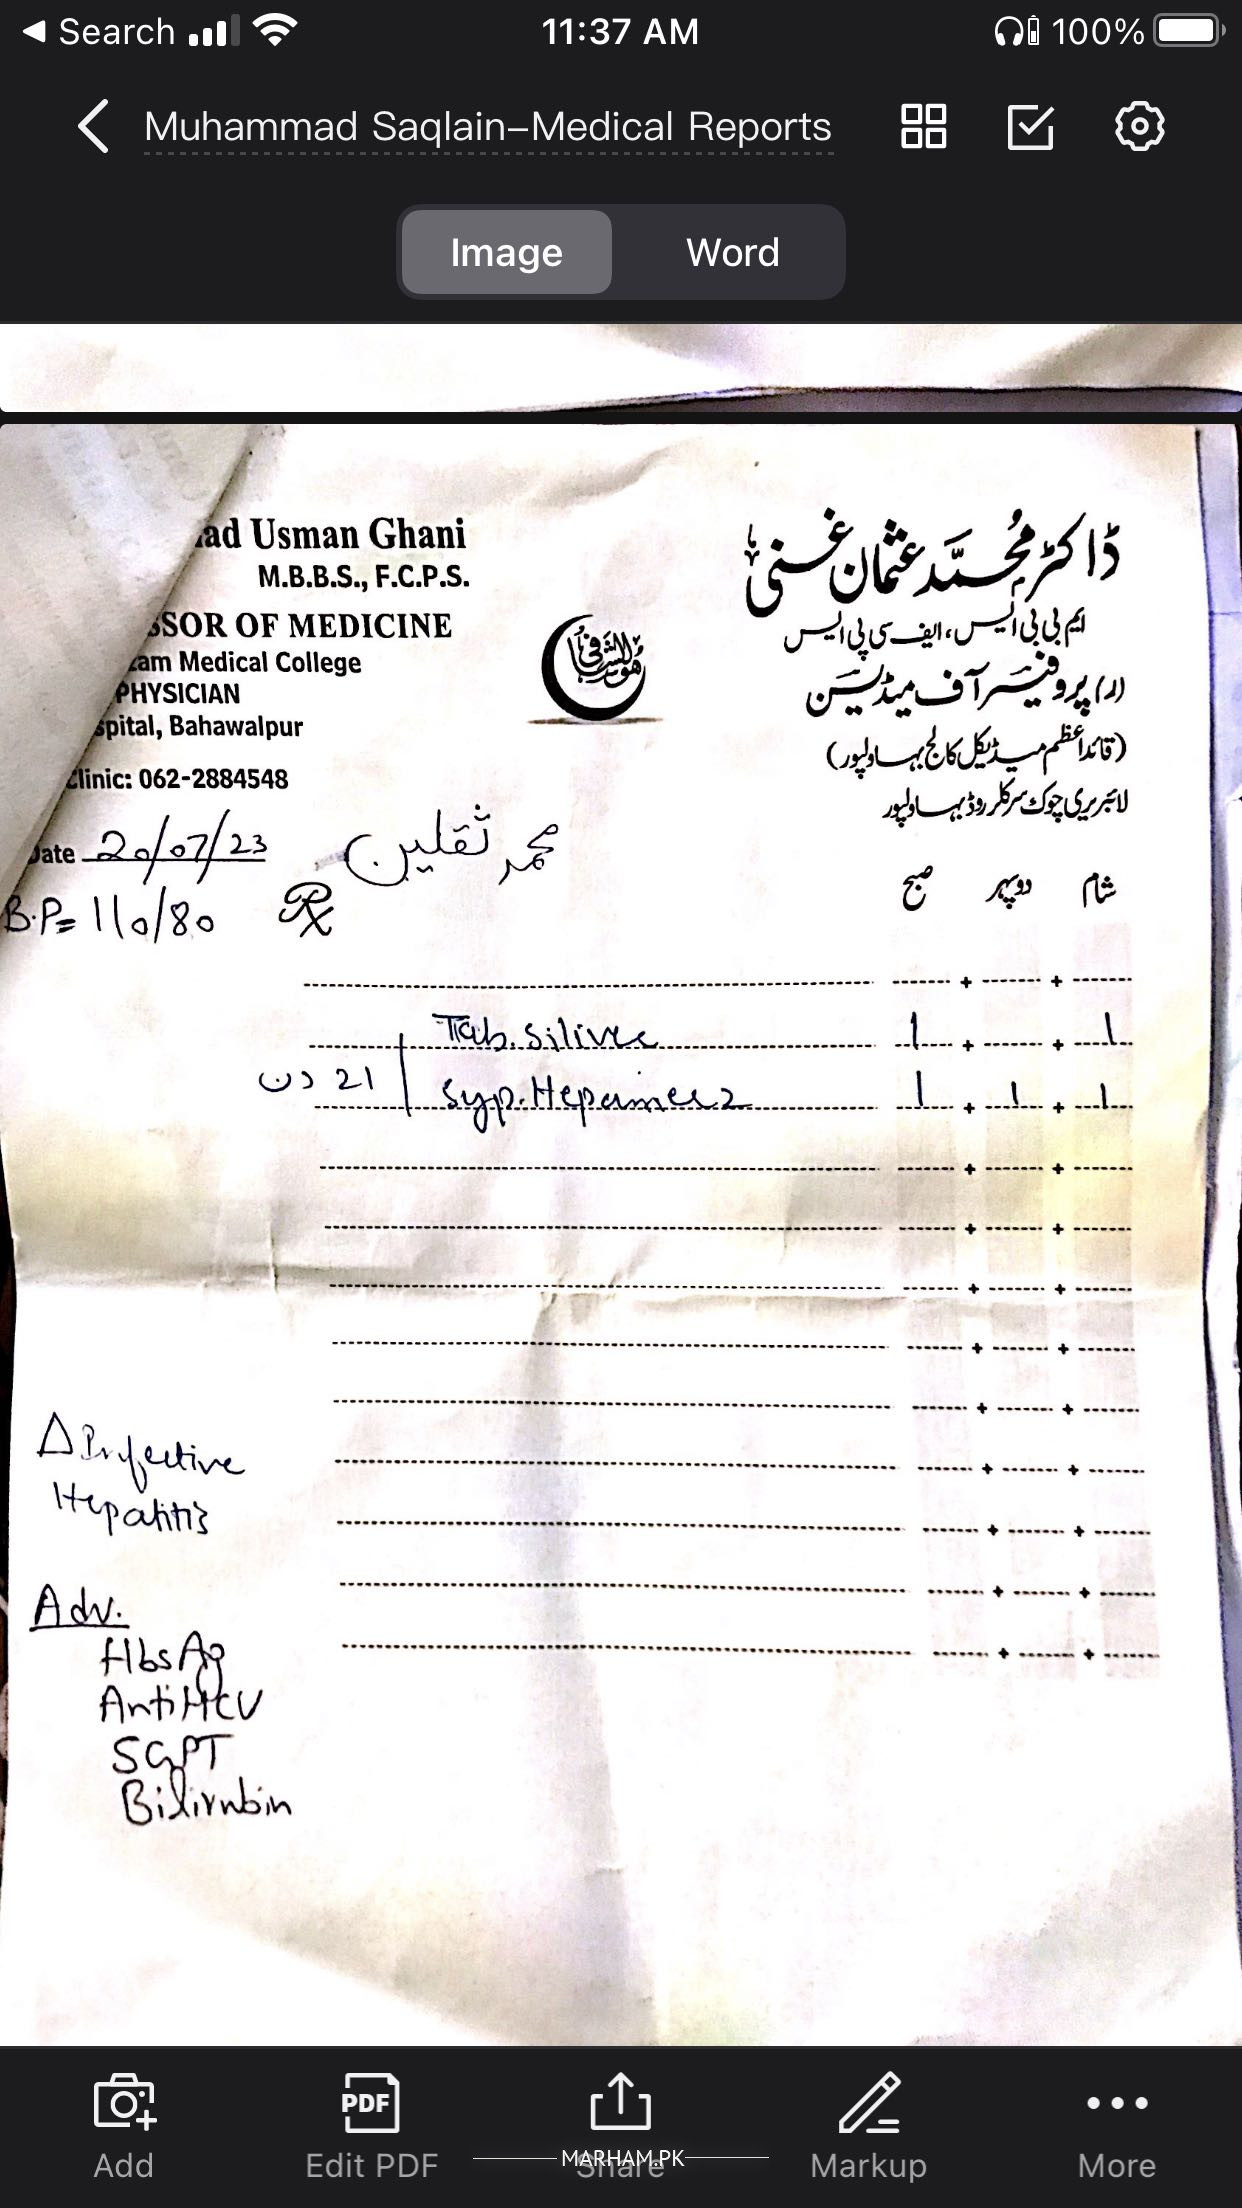 Search
11:37 AM
100%
Muhammad Saqlain-Medical Reports
Image
Word
ad Usman Ghani
M.B.B.S., F.C.P.S.
SSOR OF MEDICINE
zam Medical College
PHYSICIAN
spital, Bahawalpur
Clinic: 062-2884548
ڈاکٹر محمد عثمان غنی
ایم بی بی ایس، ایف سی پی ایس
(ر) پروفیسر آف میڈیسن
(قائداعظم میڈیکل کالج بہاولپور)
لائبریری چوک سرکلر روڈ بہاولپور
هو الشافی
Date 20/07/23
محمد ثقلین
B.P= 110/80
Rx
صبح دوپہر شام
Tab. Silivee 1 + + 1
21 دن
Syp. Hepamerz 1 + 1 + 1
Δ Infective
Hepatitis
Adv.
HbsAg
Anti HCV
SGPT
Bilirubin
Add
PDF
Edit PDF
Share
Markup
More
MARHAM.PK